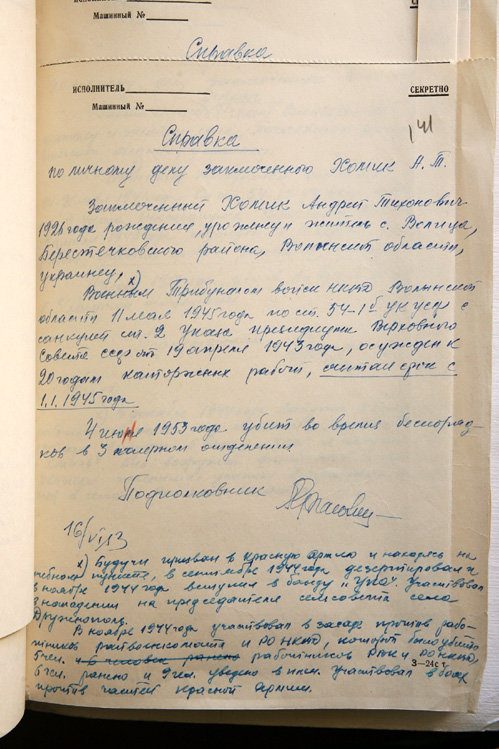 Машинный №
Справка
ИСПОЛНИТЕЛЬ
СЕКРЕТНО
Машинный №
141
Справка
по личному делу заключенного Хомик А. Т.
Заключенный Хомик Андрей Тихонович
1926 года рождения, уроженец и житель с. Волица,
Берестечковского района, Волынской области,
украинец, х)
Военным Трибуналом войск НКВД Волынской
области 11 мая 1945 года по ст. 54-1б УК УССР с
санкцией ст. 2 Указа президиума Верховного
Совета СССР от 19 апреля 1943 года, осужден к
20 годам каторжных работ, считая срок с
1.1.1945 года.
4 июня 1953 года убит во время беспоряд-
ков в 3 лагерном отделении
Подполковник
16/VI.53
х) Будучи призван в Красную армию и находясь на
учебном пункте, в сентябре 1944 года дезертировал и
в ноябре 1944 года вступил в банду "УПА". Участвовал
в нападении на председателя сельсовета села
Дружнополь.
В ноябре 1944 года участвовал в засаде против рабо-
тников райвоенкомата и РО НКВД, которой было убито
5 чел. и 6 человек ранено работников РВК и РО НКВД,
6 чел. ранено и 9 чел. уведено в плен. Участвовал в боях
против частей Красной Армии.
3—24с т.